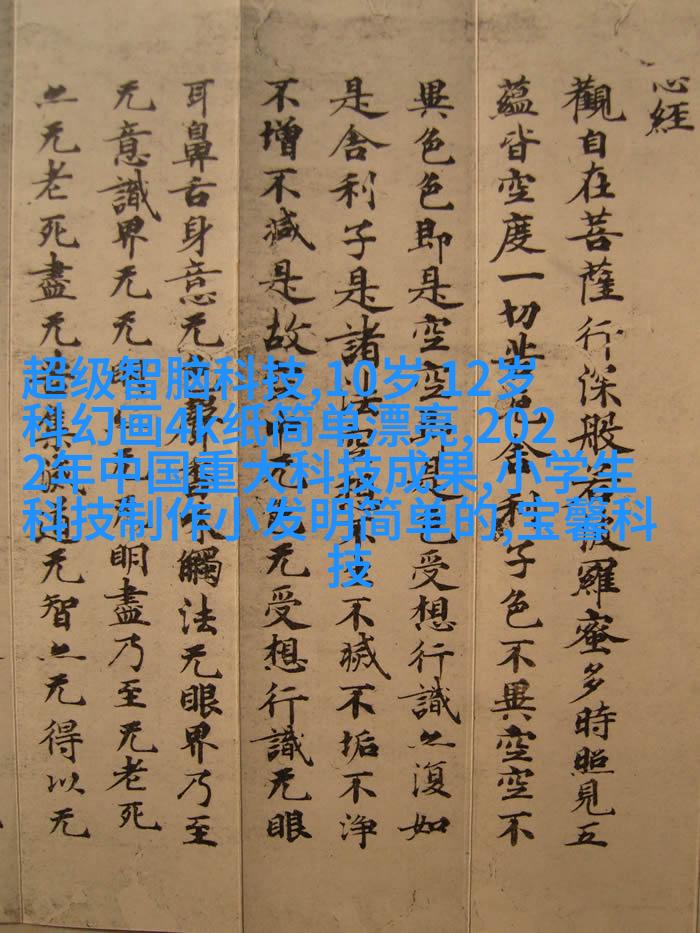 心經
觀自在菩薩行深般若波羅蜜多時照見五
蘊皆空度一切苦厄舍利子色不異空空不
異色色即是空空即是色受想行識亦復如
是舍利子是諸法空想不生不滅不垢不淨
不增不減是故空中无色无受想行識无眼
耳鼻舌身意无色聲香味觸法无眼界乃至
无意識界无无明亦无无明盡乃至无老死
亦无老死盡无苦集滅道无智亦无得以无
超级智脑科技,10岁-12岁
科幻画4k纸简单漂亮,202
2年中国重大科技成果,小学生
科技制作小发明简单的,宝馨科
技